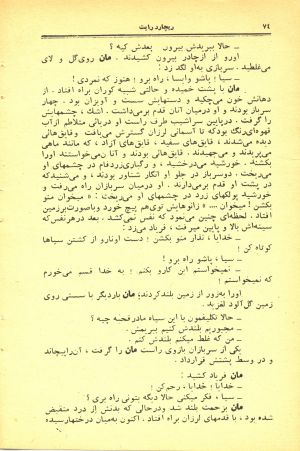 ۷٤
ریچارد رایت
— حالا ببریدش بیرون بعدش کیه ؟
اورو از آن چادر بیرون کشیدند . مان روی گل و لای
می‌غلطید . سربازی به او لگد زد :
— سیا ! پاشو وایسا ، راه برو ! هنوز که نمردی !
مان با پشت خمیده و حالتی شبیه کوران براه افتاد . از
دهانش خون می‌چکید و دستهایش سست و آویزان بود . چهار
سرباز بودند و او میان آنان قدم برمی‌داشت . اشك ، چشمهایش
را سوزاند و در مقابلش سراب ظرف است و او دریائی متلاطم از آب
قهوه‌ای‌رنگ بود که تا آسمانی لرزان گسترش می‌یافت و قایق‌هائی
دیده می‌شدند، قایق‌های سفید ، قایق‌های آزاد ، که مانند ماهی
می‌پریدند و می‌جهیدند . قایق‌هائی بودند و آنان می‌خواستند اورا
بکشند . خورشید می‌درخشید ، و رگباری زردفام در چشمهای او
می‌ریخت ، دوسرباز در جلو او انگار شناور بودند ، و می‌شنید که
در پشت او قدم برمی‌دارند . او درمیان سربازان راه می‌رفت و
خورشید پولکهای زرد در چشمهای او می‌ریخت : « میخوان منو
بکشن ! میخوان... » زانوهایش توی هم پیچ خورد و با صورت برزمین
افتاد . لحظه‌ای چنین می‌نمود که نفس نمی‌کشد . بعد درهر نفس که
سینه‌اش بالا و پایین میرفت ، فریاد می‌زد :
— خدایا ، نذار منو بکشن ! دست اونارو از کشتن سیاها
کوتاه کن !
— سیا ، پاشو راه برو !
— نمیخواستم این کارو بکنم ! به خدا قسم می‌خورم
که نمیخواستم !
اورا به زور از زمین بلند کردند؛ مان باردیگر با سستی روی
زمین گل‌آلود لغزید .
— حالا تکلیفمون با این سیاه مادرقحبه چیه ؟
— مجبوریم بلندش کنیم ببریمش .
— من که غلط میکنم بلندش کنم .
یکی از سربازان بازوی راست مان را گرفت ، آن را پیچاند
و در وسط پشتش قرارداد .
مان فریاد کشید :
— خدایا ! خدایا ، رحم کن !
— سیا ، فکر میکنی حالا دیگه بتونی راه بری ؟
مان بزحمت بلند شد و درحالی که بدنش از درد منقبض
شده بود ، با قدمهای لرزان براه افتاد . اکنون به میان درختها رسیده